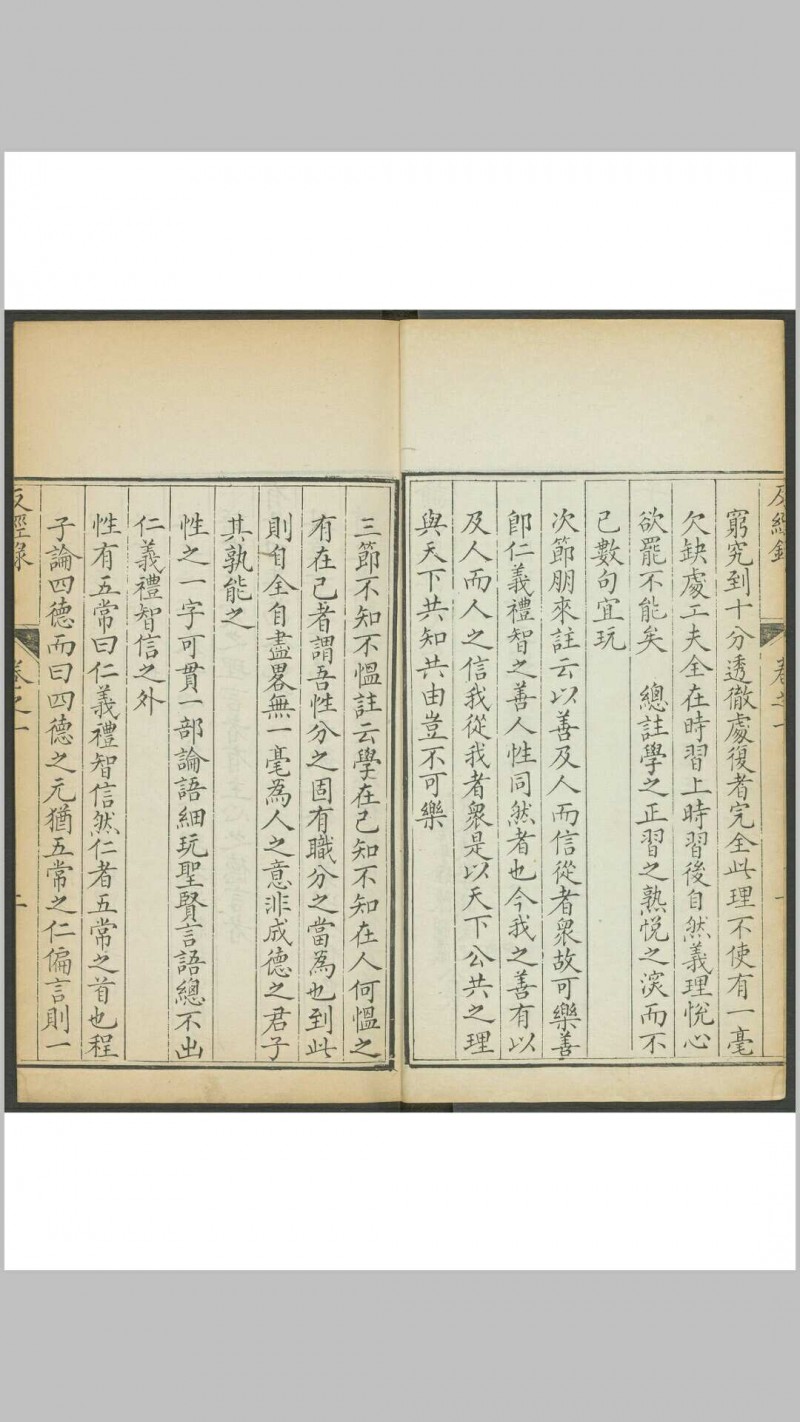 窮究到十分透徹處復者完全此理不使有一毫
欠缺處工夫全在時習上時習後自然義理悅心
欲罷不能矣　總註學之正習之熟悅之深而不
已數句宜玩
次節朋來註云以善及人而信從者衆故可樂善
卽仁義禮智之善人性同然者也今我之善有以
及人而人之信我從我者衆是以天下公共之理
與天下共知共由豈不可樂
三節不知不慍註云學在己知不知在人何慍之
有在己者謂吾性分之固有職分之當為也到此
則自全自盡畧無一毫為人之意非成德之君子
其孰能之
性之一字可貫一部論語細玩聖賢言語總不出
仁義禮智信之外
性有五常曰仁義禮智信然仁者五常之首也程
子論四德而曰四德之元猶五常之仁偏言則一
反經錄
卷之一